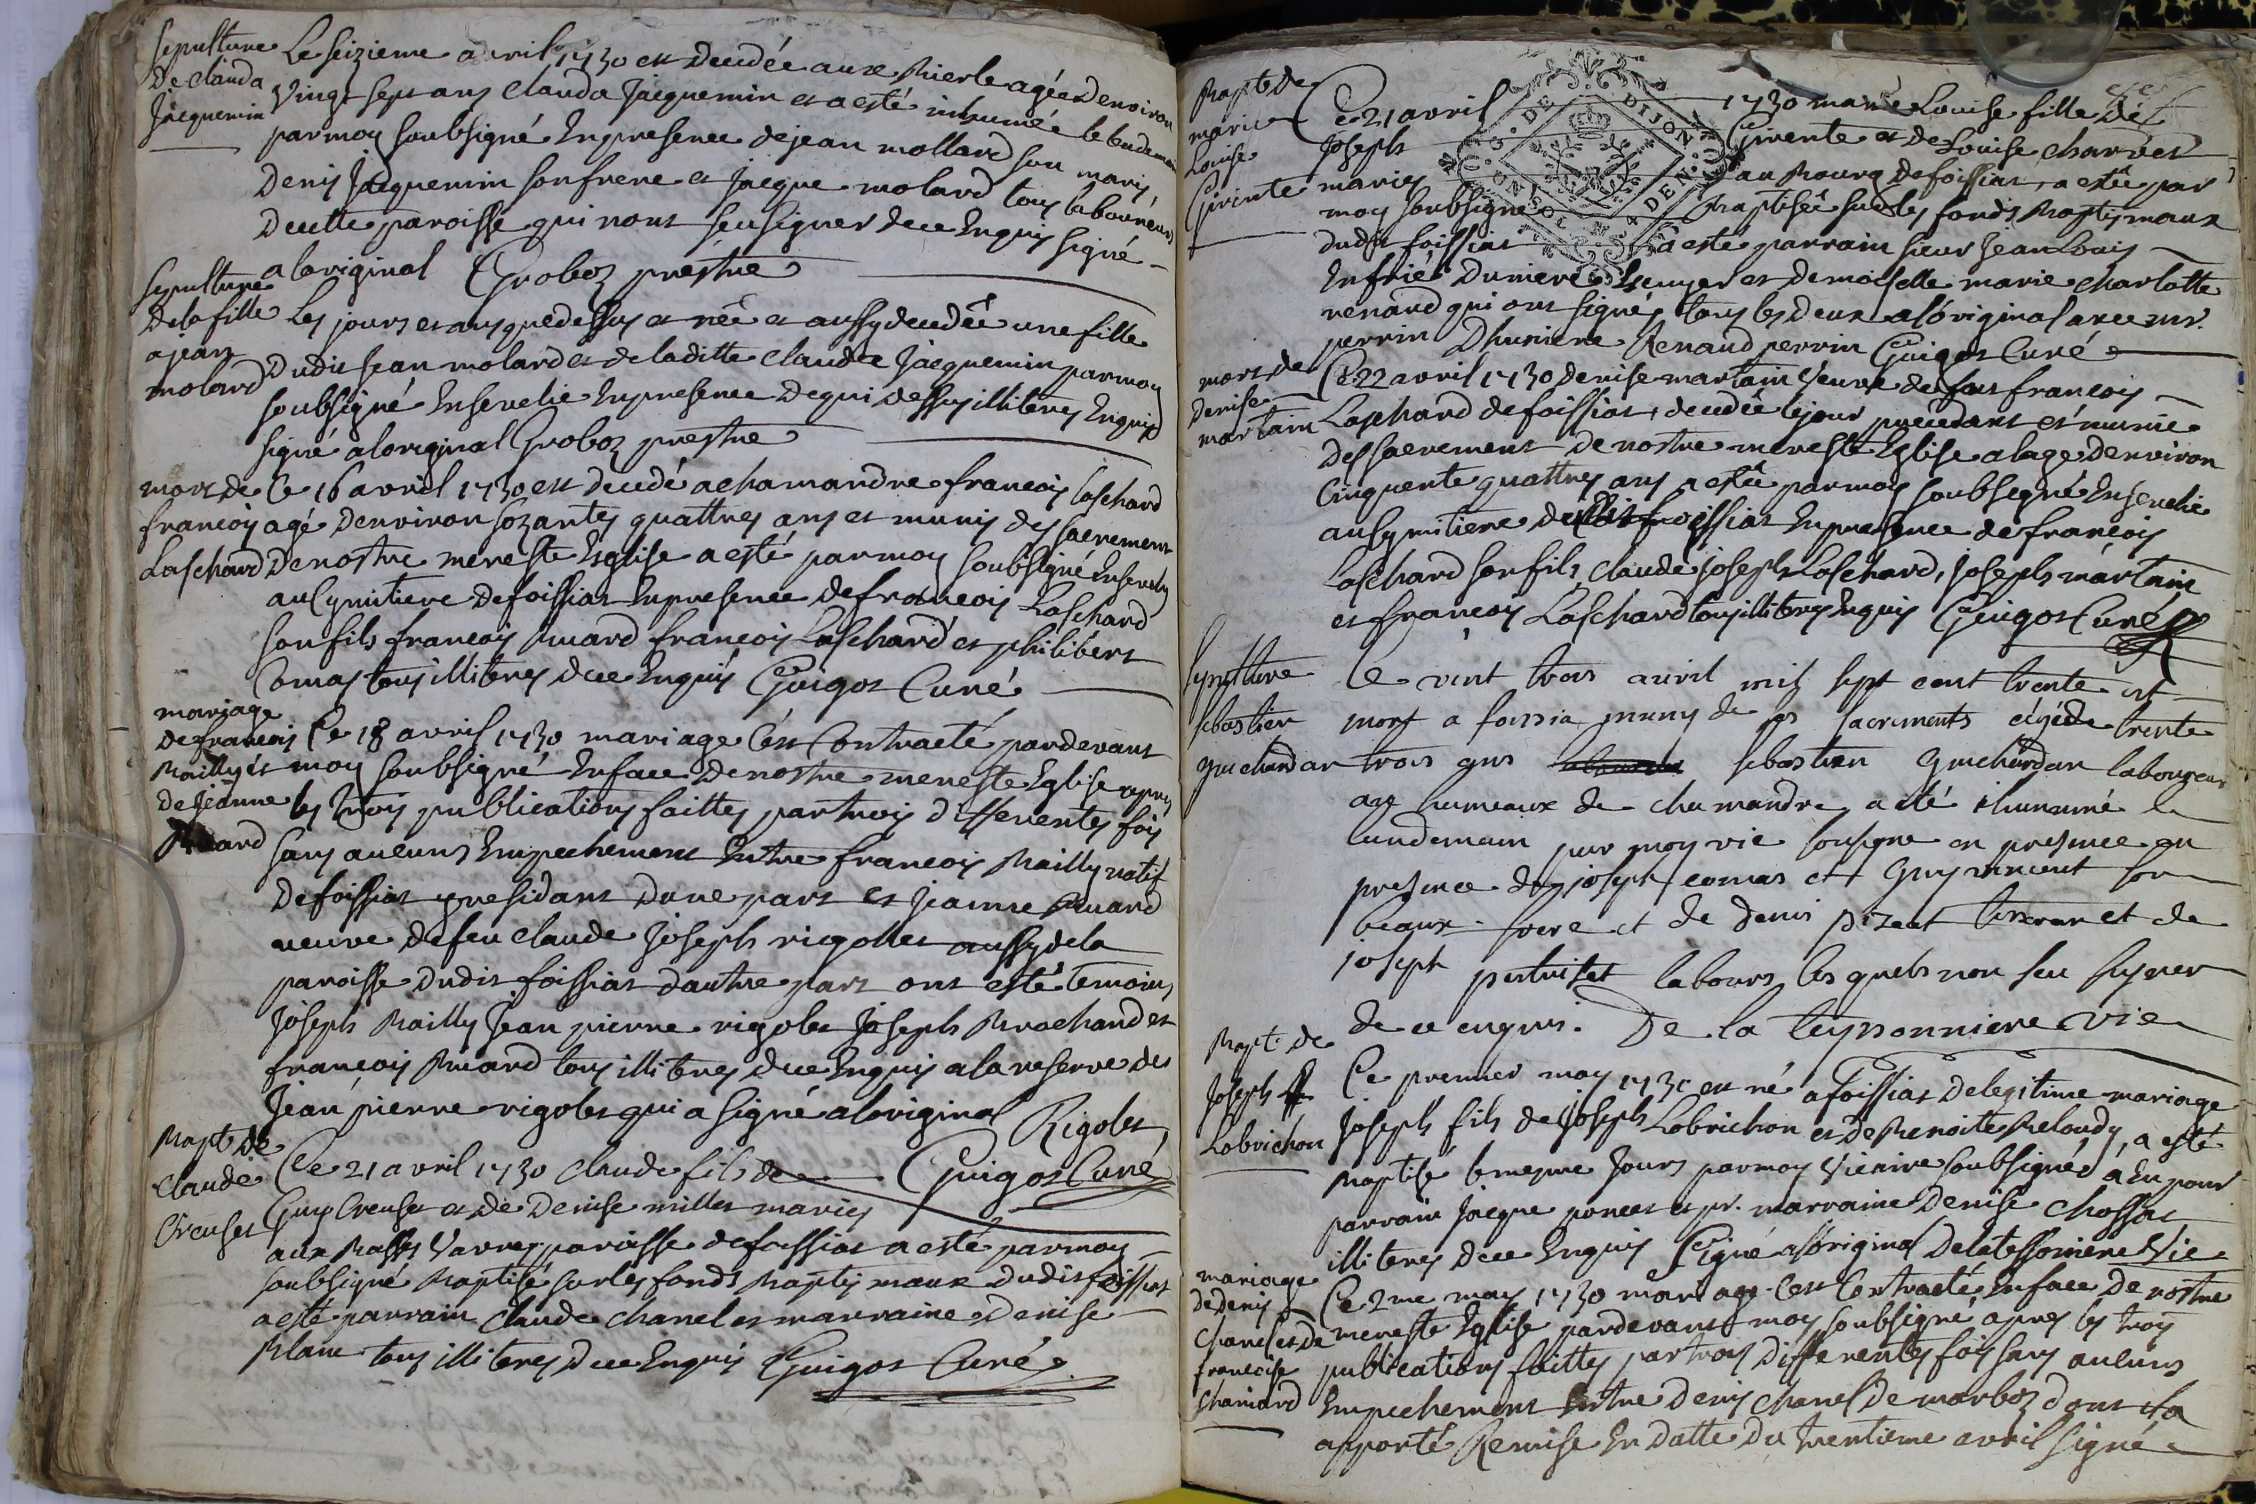 Sepulture
De Clauda
Jacquemin
Le seizieme avril 1730 est decedée aux Mierle agée denviron
vingt sept ans Clauda Jacquemin et a esté inhumée le lendemain
par moy soubsigné En presence de jean mollard son mary
Denis Jacquemin son frere et Jacque molard tous laboureurs
de cette paroisse qui nont sceu signer de ce Enquis signé
a loriginal Groboz prestre
Sepulture
De la fille
a jean
molard
Les jours et ans que dessus est née et aussy decedée une fille
Dudit Jean molard et de laditte Claudea Jacquemin par moy
soubsigné Ensevelie En presence de qui dessus illiteres Enquis
signé a loriginal Groboz prestre
mort de
francois
Laschard
Ce 16 avril 1730 est decedé a chamandre francois Laschard
agé Denviron sozantes quattres ans et munis des sacrement
De nostre mere ste Esglise a esté par moy soubsigné Ensevely
au Cymitiere de foissiat En presence de francois Laschard
son fils francois Buard francois Laschard et philibert
Comas tous illiteres de ce Enquis Guigot Curé
mariage
De francois
Bailly et
de Jeanne
Buard
Ce 18 avril 1730 mariage C'est Contracté pardevant
moy soubsigné En face De nostre mere ste Eglise apres
les trois publications faittes par trois differentes fois
sans aucuns Empechement Entre francois Bailly natif
De foissiat y residant dune part et Jeanne Buard
veuve de feu Claude Joseph rigollet aussy de la
paroisse Dudit foissiat dautre part ont esté temoins
Joseph Bailly Jean pierre rigolet Joseph Brochand et
francois Buard tous illiteres de ce Enquis a la reserve de
Jean pierre rigolet qui a signé a loriginal Rigolet
Guigot Curé
Bapt de
Claude
Creuset
Ce 21 avril 1730 Claude fils de
Guy Creuset et de Denise millet maries
aux Basses Vavres paroisse de foissiat a esté par moy
soubsigné Baptisé sur les fonds Baptismaux dudit foissiat
a esté parrain Claude Chanel et marraine Denise
Blanc tous illiteres de ce Enquis Guigot Curé
Bapt de
marie
Louise
Girinte
Ce 21 avril 1730 marie Louise fille de
Joseph Girente et de Louise Charvet
maries au Bourg de foissiat, a esté par
moy soubsigné Baptisée sur les fonds Baptismaux
dudit foissiat a esté parrain sieur Jean Louis
Enfrié Duniere Escuyer et demoiselle marie Charlotte
renaud qui ont signés tous les deux a loriginal avec mr.
perrin Dhuniere Renaud perrin Guigot Curé
G. DE DIJON
mort de
Denise
martain
Ce 22 avril 1730 denise martain veuve de fut francois
Laschard de foissiat, decedée le jour precedent et munie
Des sacrement de nostre mere ste Eglise a lage Denviron
Cinquente quattres ans a esté par moy soubsigné Ensevelie
au Cymitiere de foissiat En presence de francois
Laschard son fils, Claude joseph Laschard, Joseph martain
et francois Laschard tous illiteres Enquis Guigot Curé
Sepulture
sebastien
guichardan
Ce vint trois avril mil sept cent trente est
mort a foissia muny de ses sacrements agé de trente
trois ans sebastien guichardan laboureur
aux humeaux de chamandre, a eté ihumme le
lundemain par moy vic sousigne en presence en
presence de joseph comas et guy vincent son
beaux-frere et de denis pizeat tisseran et de
joseph pertuiset labours les quels non seu signer
de ce enquis. De la teyssonniere vic
Bapt. de
Joseph
Lobrichon
Ce premier may 1730 est né a foissiat de legitime mariage
Joseph fils de Joseph Lobrichon et de Benoite Beloudy, a esté
Baptisé le mesme Jours par moy vicaire soubsigné a Eu pour
parrain Jacque poncet et pr. marraine Denise Chossat
illiteres de ce Enquis signé a loriginal Delatessoniere Vic
mariage
de denis
Chanel et de
francoise
Chaniard
Ce 2me may 1730 mariage C'est Contracté En face De nostre
mere ste Eglise pardevant moy soubsigné apres les trois
publications faittes par trois differentes fois sans aucuns
Empechement Entre denis Chanel De marboz dont il a
apporté Remise En datte du trentieme avril signé